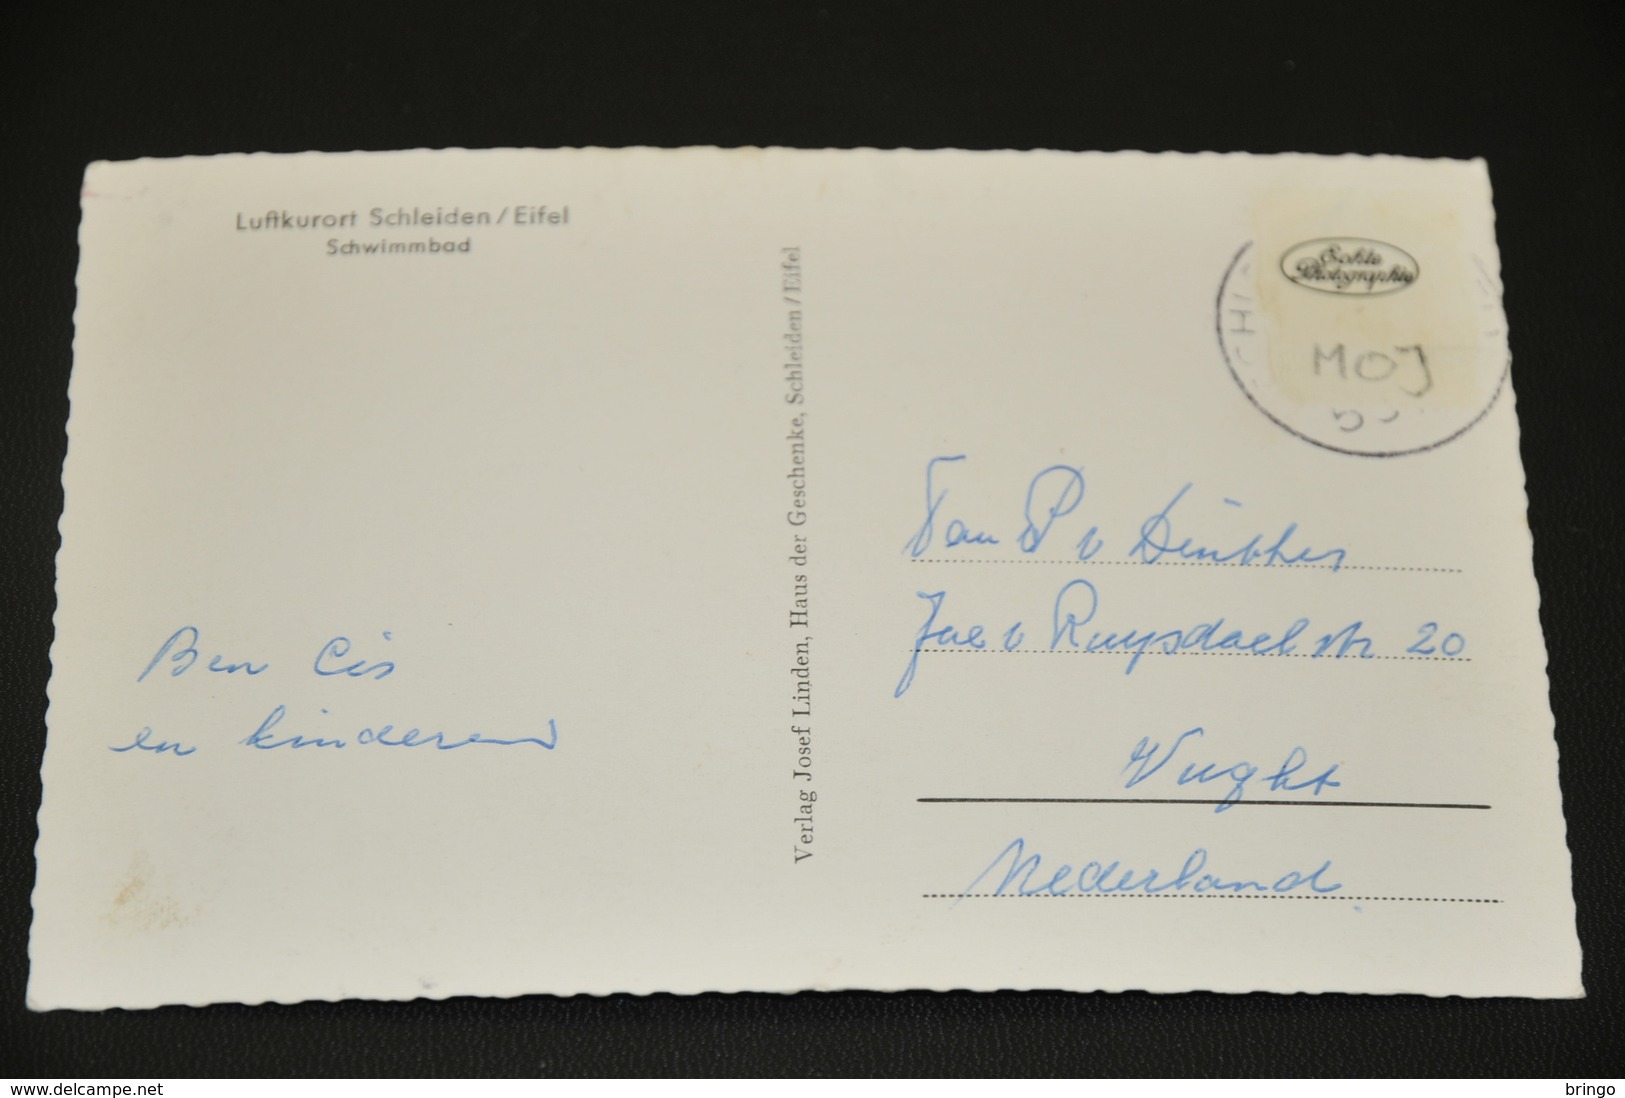 Luftkurort Schleiden/Eifel
Schwimmbad
Ben Cis
en kinderen
Verlag Josef Linden, Haus der Geschenke, Schleiden/Eifel
Echte
Photographie
MOJ
Fam P v
Jac v Ruysdael str 20
Vught
Nederland
delcampe.net
bringo